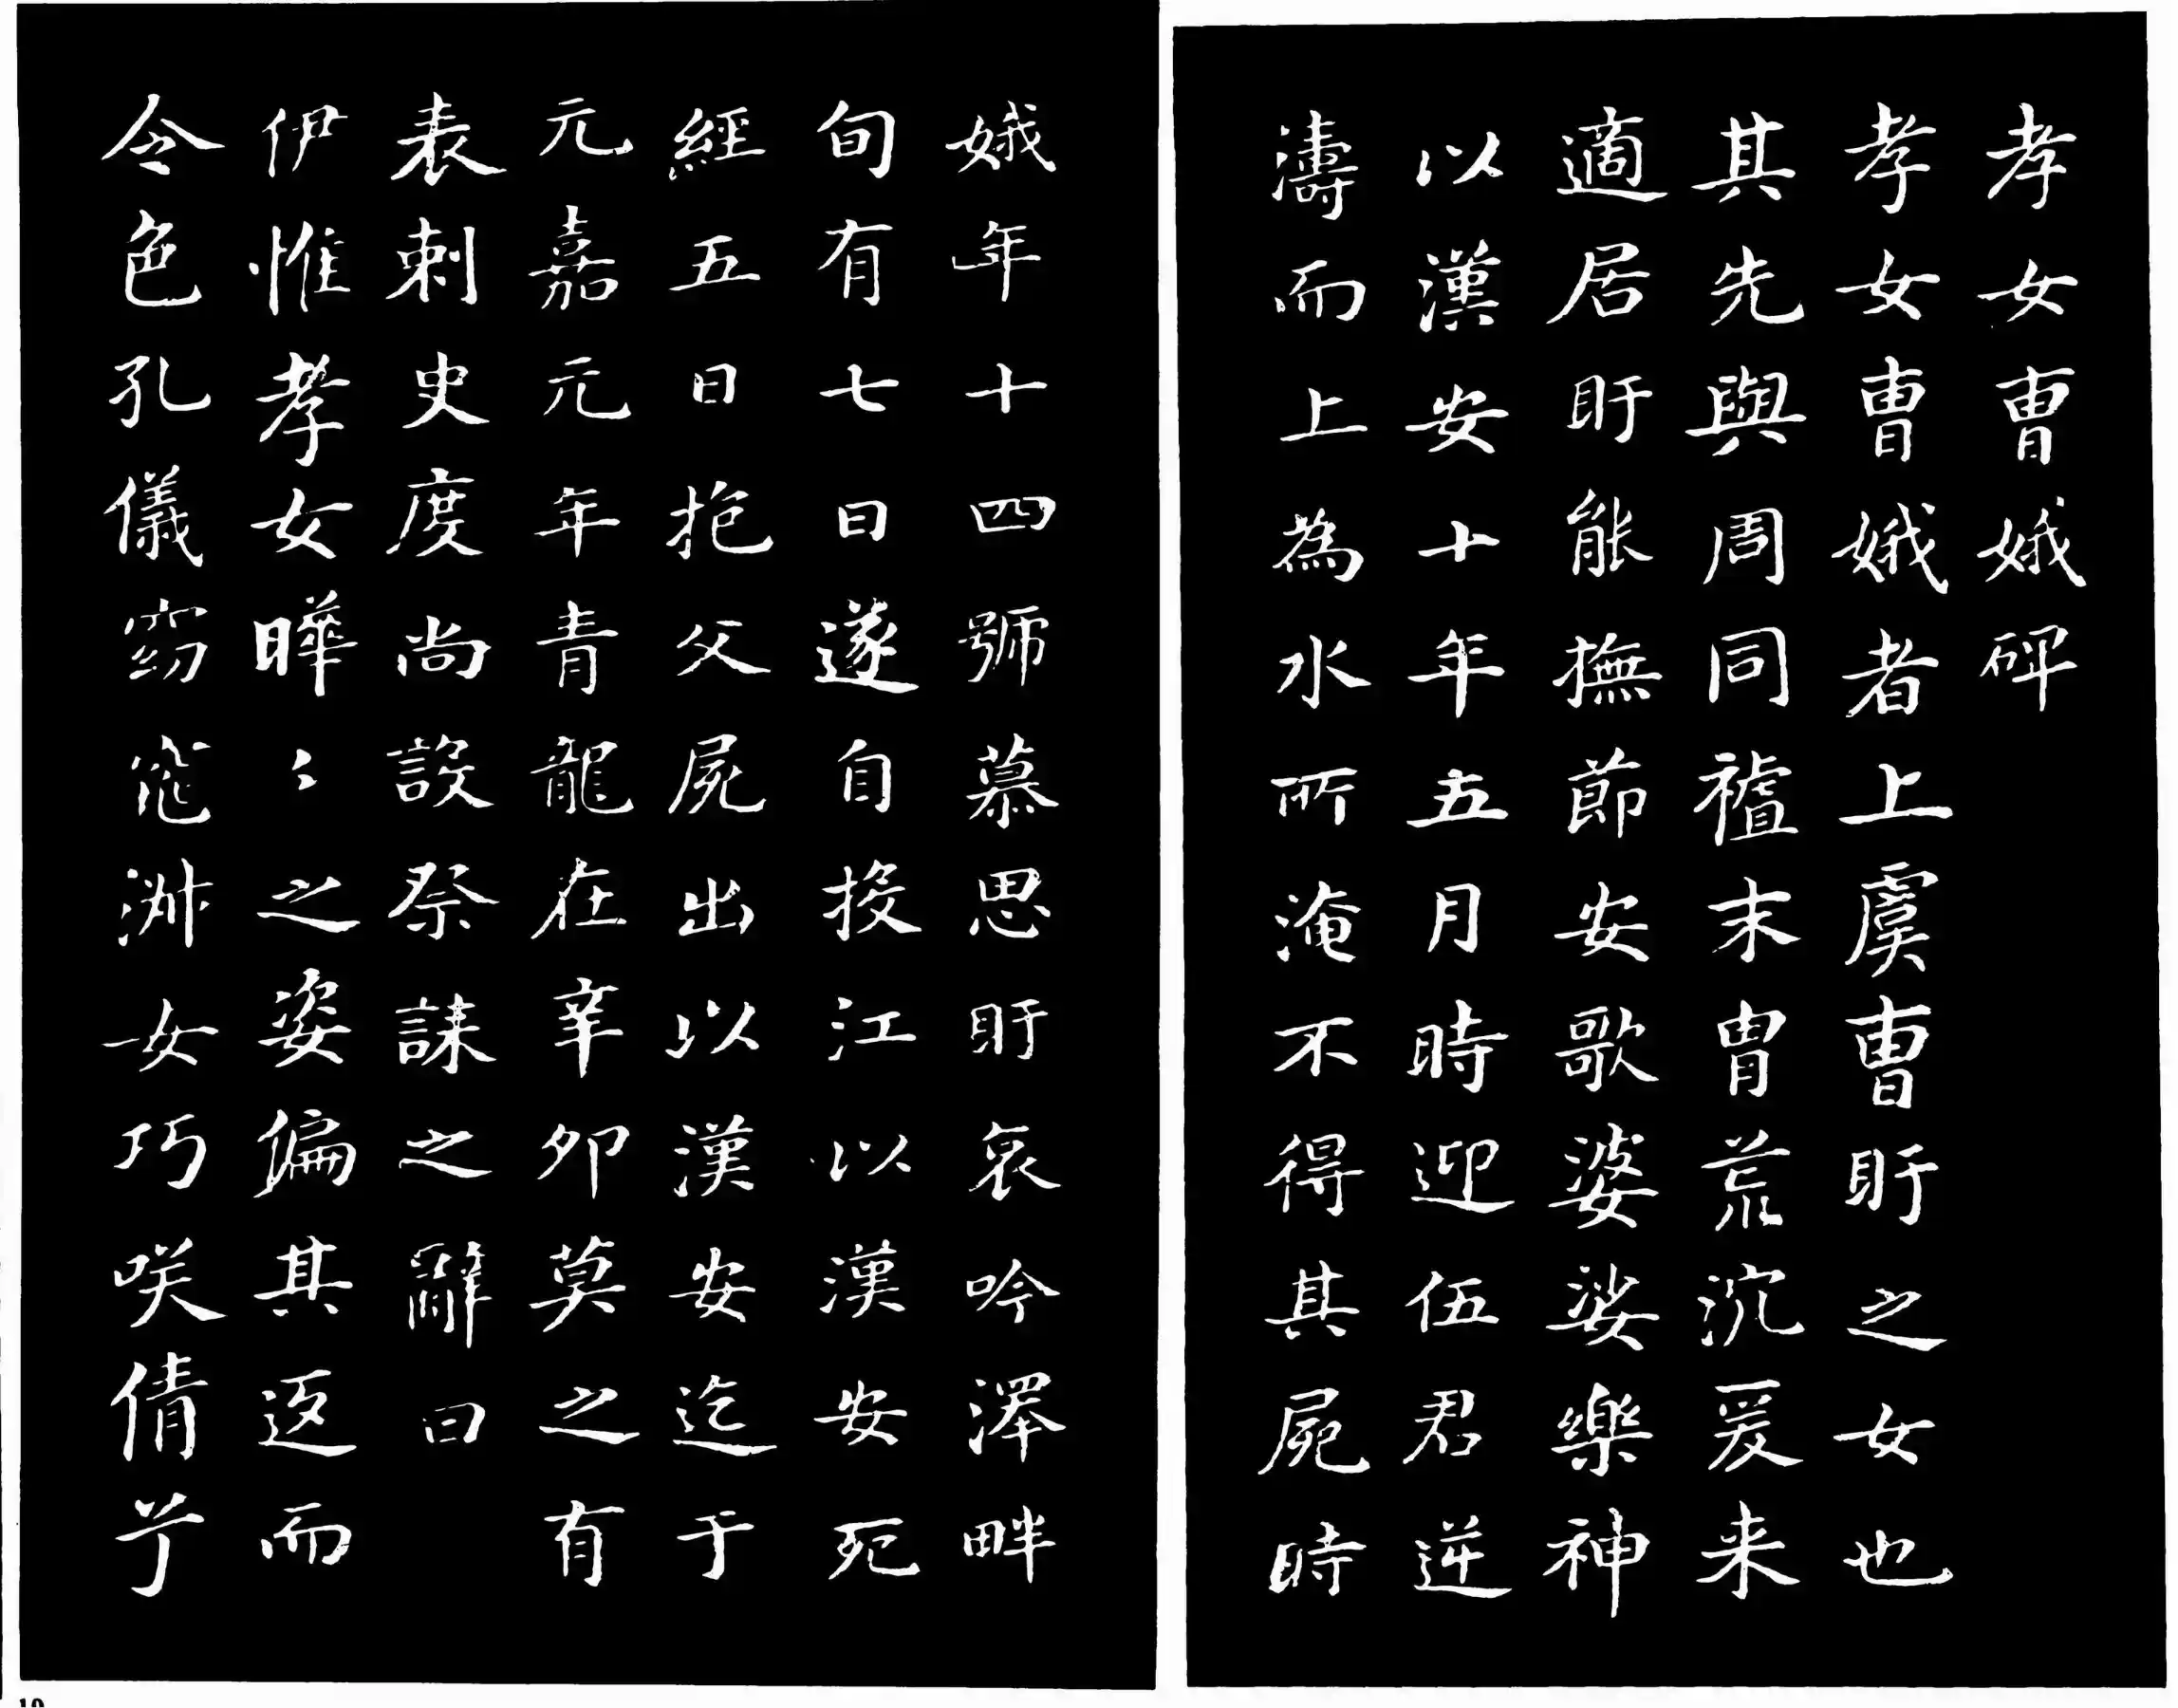 孝女曹娥碑
孝女曹娥者上虞曹盱之女也
其先與周同祖末胄荒沉爰来
適居盱能撫節安歌婆娑樂神
以漢安十年五月時迎伍君逆
濤而上為水所淹不得其屍時
娥年十四號慕思盱哀吟澤畔
旬有七日遂自投江以漢安死
經五日抱父屍出以漢安迄于
元嘉元年青龍在辛卯莫之有
表刺史度尚設祭誄之辭曰
伊惟孝女曄〻之姿偏其返而
令色孔儀窈窕淑女巧咲倩兮
10